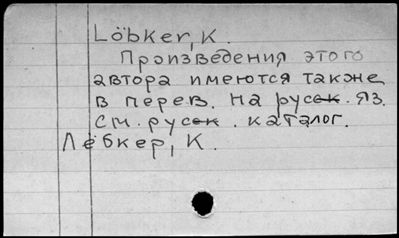 Löbker, K.
Произведения этого
автора имеются также
в перев. на русск. яз.
см. русск. каталог.
Лёбкер, К.